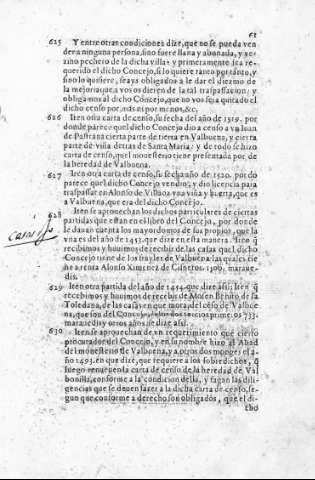 61
625 Y entre otras condiciones dize, que no se pueda ven
der a ninguna persona, sino fuere llana y abonada, y ve-
zino pechero de la dicha villa: y primeramente sea re-
querido el dicho Concejo, si lo quiere tanto por tanto, y
sino lo quisiere, seays obligados a le dar el diezmo de
la mejoria que a vos os dieren de la tal traspassacion: y
obligamos al dicho Concejo, que no vos sera quitado el
dicho censo por mas ni por menos, &c.
626 Iten otra carta de censo, su fecha año de 1519. por
donde parece quel dicho Concejo dio a censo a vn Iuan
de Pastrana cierta parte de tierra en Valbuena, y cierta
parte de viña detras de Santa Maria: y de todo se hizo
carta de censo, quel monesterio tiene presentada por de
la heredad de Valbuena.
627 Iten otra carta de censo, su fecha año de 1520. por do
parece quel dicho Concejo vendio, y dio licencia para
traspassar en Alonso de Villoua vna viña y huerta, que es
a Valbuena, que era del dicho Concejo.
628 Iten se aprouechan los dichos particulares de ciertas
partidas que estan en el libro del Concejo, por donde
le dauan cuenta los mayordomos de sus propios, que la
vna es del año de 1453. que dize en esta manera. Iten q̃
recibimos y houimos de recebir de las casas quel dicho
Concejo tiene de los frayles de Valbuena las quales tie
ne a renta Alonso Ximenez de Cisneros. 1500. maraue-
dis.
629 Iten otra partida del año de 1454. que dize assi: Iten q̃
recebimos y houimos de recebir de Mosen Benito de la
Toledana, de las casas en que mora, del ceso de Valbue
na, que son del Concejo, 733.
marauedis y otros años se dize assi.
630 Iten se aprouechan de vn requirimiento que cierto
procurador del Concejo, y en su nombre hizo al Abad
del monesterio de Valbuena, y a otros dos monges el a-
ño 1493. en que dize, que requiere a los sobredichos, q̃
luego renueuen la carta de censo de la heredad de Val
bonilla, conforme a la condicion della, y fagan las dili-
gencias que se deuen fazer a la dicha carta de censo, se-
gun que conforme a derecho son obligados, que el di-
cho